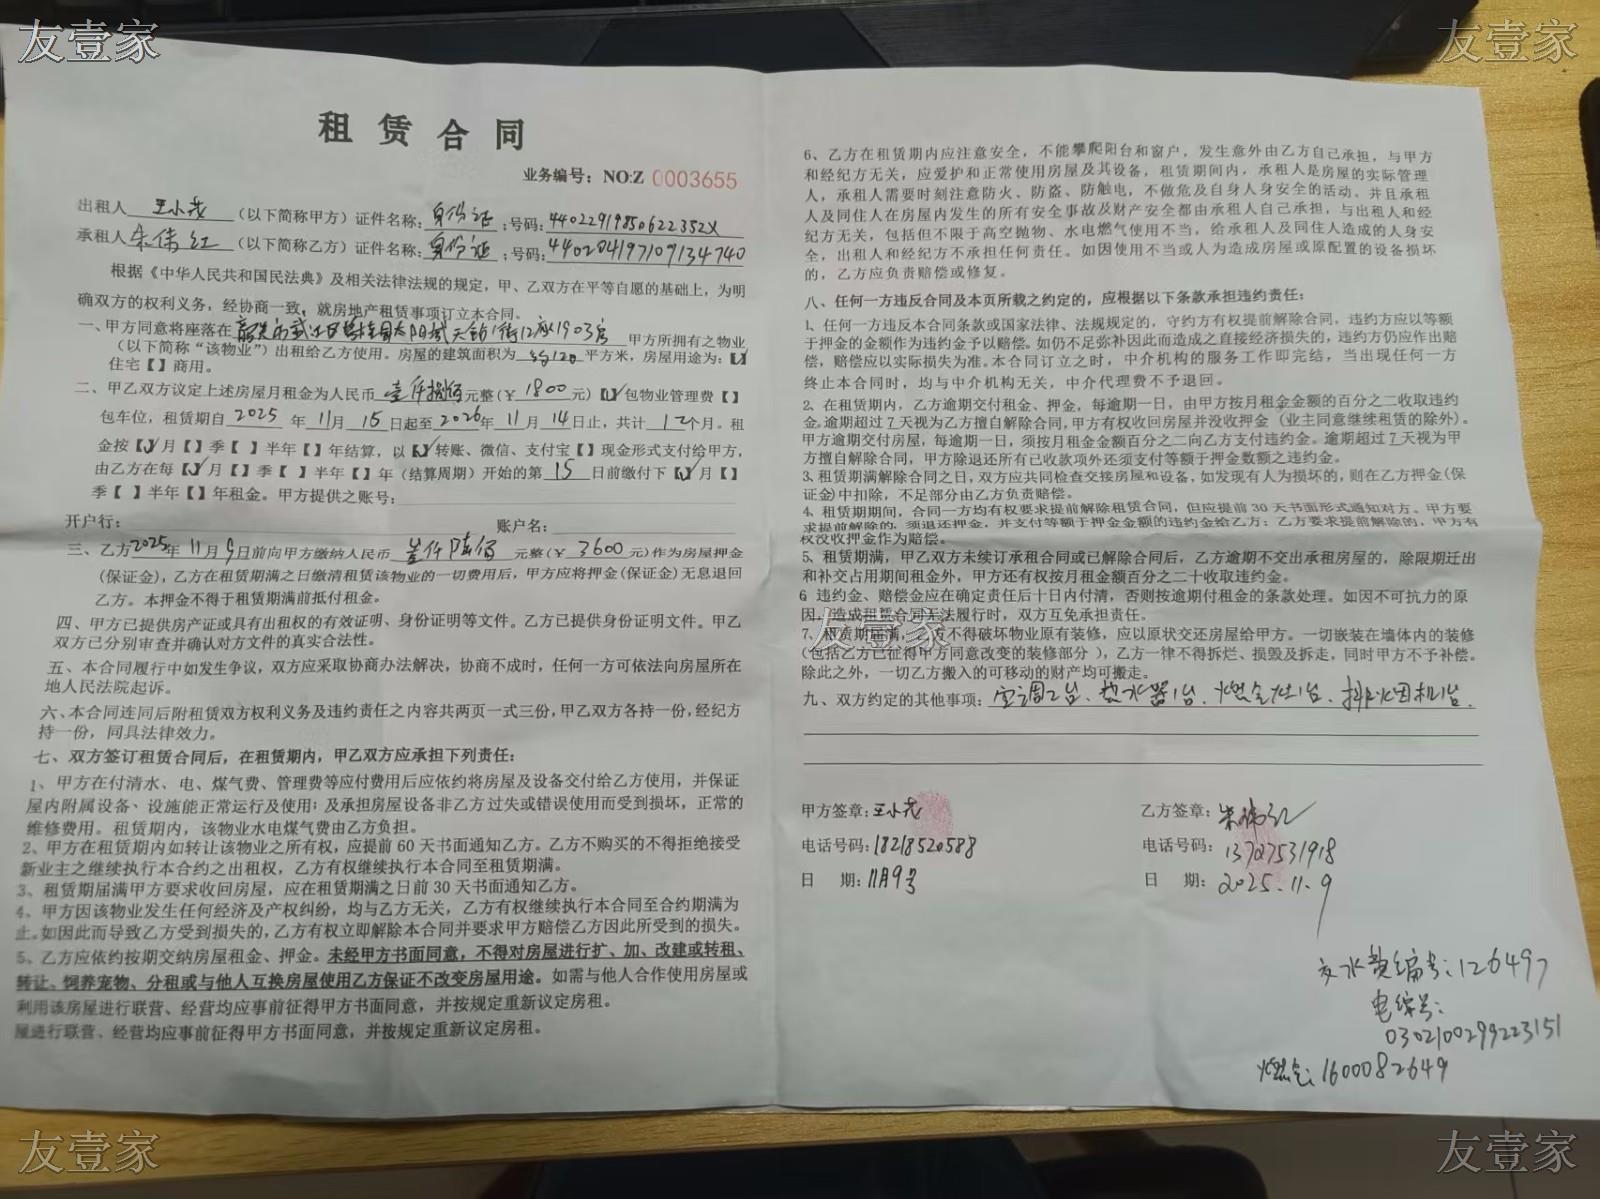 友壹家
友壹家
租赁合同
业务编号：NO:Z 0003655
出租人 王小茂 （以下简称甲方）证件名称：身份证；号码：44022919850622352X
承租人 朱伟红 （以下简称乙方）证件名称：身份证；号码：440284197109134740
根据《中华人民共和国民法典》及相关法律法规的规定，甲、乙双方在平等自愿的基础上，为明
确双方的权利义务，经协商一致，就房地产租赁事项订立本合同。
一、甲方同意将座落在 韶关市武江区 太阳城 街12座1903房 甲方所拥有之物业
（以下简称“该物业”）出租给乙方使用。房屋的建筑面积为 约120 平方米，房屋用途为：【√】
住宅【 】商用。
二、甲乙双方议定上述房屋月租金为人民币 壹仟捌佰 元整(￥ 1800 元)【√】包物业管理费【 】
包车位，租赁期自 2025 年 11 月 15 日起至 2026 年 11 月 14 日止，共计 12 个月。租
金按【√】月【 】季【 】半年【 】年结算，以【√】转账、微信、支付宝【 】现金形式支付给甲方，
由乙方在每【√】月【 】季【 】半年【 】年（结算周期）开始的第 15 日前缴付下【√】月【 】
季【 】半年【 】年租金。甲方提供之账号：
开户行： 账户名：
三、乙方2025年 11 月 9 日前向甲方缴纳人民币 叁仟陆佰 元整(￥ 3600 元)作为房屋押金
(保证金)，乙方在租赁期满之日缴清租赁该物业的一切费用后，甲方应将押金(保证金)无息退回
乙方。本押金不得于租赁期满前抵付租金。
四、甲方已提供房产证或具有出租权的有效证明、身份证明等文件。乙方已提供身份证明文件。甲乙
双方已分别审查并确认对方文件的真实合法性。
五、本合同履行中如发生争议，双方应采取协商办法解决，协商不成时，任何一方可依法向房屋所在
地人民法院起诉。
六、本合同连同后附租赁双方权利义务及违约责任之内容共两页一式三份，甲乙双方各持一份，经纪方
持一份，同具法律效力。
七、双方签订租赁合同后，在租赁期内，甲乙双方应承担下列责任：
1、甲方在付清水、电、煤气费、管理费等应付费用后应依约将房屋及设备交付给乙方使用，并保证
屋内附属设备、设施能正常运行及使用；及承担房屋设备非乙方过失或错误使用而受到损坏，正常的
维修费用。租赁期内，该物业水电煤气费由乙方负担。
2、甲方在租赁期内如转让该物业之所有权，应提前 60 天书面通知乙方。乙方不购买的不得拒绝接受
新业主之继续执行本合约之出租权，乙方有权继续执行本合同至租赁期满。
3、租赁期届满甲方要求收回房屋，应在租赁期满之日前 30 天书面通知乙方。
4、甲方因该物业发生任何经济及产权纠纷，均与乙方无关，乙方有权继续执行本合同至合约期满为
止。如因此而导致乙方受到损失的，乙方有权立即解除本合同并要求甲方赔偿乙方因此所受到的损失。
5、乙方应依约按期交纳房屋租金、押金。未经甲方书面同意，不得对房屋进行扩、加、改建或转租、
转让、饲养宠物、分租或与他人互换房屋使用乙方保证不改变房屋用途。如需与他人合作使用房屋或
利用该房屋进行联营、经营均应事前征得甲方书面同意，并按规定重新议定房租。
屋进行联营、经营均应事前征得甲方书面同意，并按规定重新议定房租。
6、乙方在租赁期内应注意安全，不能攀爬阳台和窗户，发生意外由乙方自己承担，与甲方
和经纪方无关，应爱护和正常使用房屋及其设备，租赁期间内，承租人是房屋的实际管理
人，承租人需要时刻注意防火、防盗、防触电，不做危及自身人身安全的活动。并且承租
人及同住人在房屋内发生的所有安全事故及财产安全都由承租人自己承担，与出租人和经
纪方无关，包括但不限于高空抛物、水电燃气使用不当，给承租人及同住人造成的人身安
全，出租人和经纪方不承担任何责任。如因使用不当或人为造成房屋或原配置的设备损坏
的，乙方应负责赔偿或修复。
八、任何一方违反合同及本页所载之约定的，应根据以下条款承担违约责任：
1、任何一方违反本合同条款或国家法律、法规规定的，守约方有权提前解除合同，违约方应以等额
于押金的金额作为违约金予以赔偿。如仍不足弥补因此而造成之直接经济损失的，违约方仍应作出赔
偿，赔偿应以实际损失为准。本合同订立之时，中介机构的服务工作即完结，当出现任何一方
终止本合同时，均与中介机构无关，中介代理费不予退回。
2、在租赁期内，乙方逾期交付租金、押金，每逾期一日，由甲方按月租金金额的百分之二收取违约
金。逾期超过 7 天视为乙方擅自解除合同，甲方有权收回房屋并没收押金（业主同意继续租赁的除外）。
甲方逾期交付房屋，每逾期一日，须按月租金金额百分之二向乙方支付违约金。逾期超过 7 天视为甲
方擅自解除合同，甲方除退还所有已收款项外还须支付等额于押金数额之违约金。
3、租赁期满解除合同之日，双方应共同检查交接房屋和设备，如发现有人为损坏的，则在乙方押金(保
证金)中扣除，不足部分由乙方负责赔偿。
4、租赁期期间，合同一方均有权要求提前解除租赁合同，但应提前 30 天书面形式通知对方。甲方要
求提前解除的，须退还押金，并支付等额于押金金额的违约金给乙方；乙方要求提前解除的，甲方有
权没收押金作为赔偿。
5、租赁期满，甲乙双方未续订承租合同或已解除合同后，乙方逾期不交出承租房屋的，除限期迁出
和补交占用期间租金外，甲方还有权按月租金额百分之二十收取违约金。
6 违约金、赔偿金应在确定责任后十日内付清，否则按逾期付租金的条款处理。如因不可抗力的原
因，造成租赁合同无法履行时，双方互免承担责任。
友壹家
7、租赁期届满，乙方不得破坏物业原有装修，应以原状交还房屋给甲方。一切嵌装在墙体内的装修
(包括乙方已征得甲方同意改变的装修部分)，乙方一律不得拆烂、损毁及拆走，同时甲方不予补偿。
除此之外，一切乙方搬入的可移动的财产均可搬走。
九、双方约定的其他事项：空调2台、热水器1台、燃气灶1台、排火因机1台.
甲方签章：王小茂
电话号码：18218520588
日 期：11月9号
乙方签章：朱伟红
电话号码：13727531918
日 期：2025.11.9
交水费编号：126497
电编号：
0302100299223151
燃气：1600082649
友壹家
友壹家